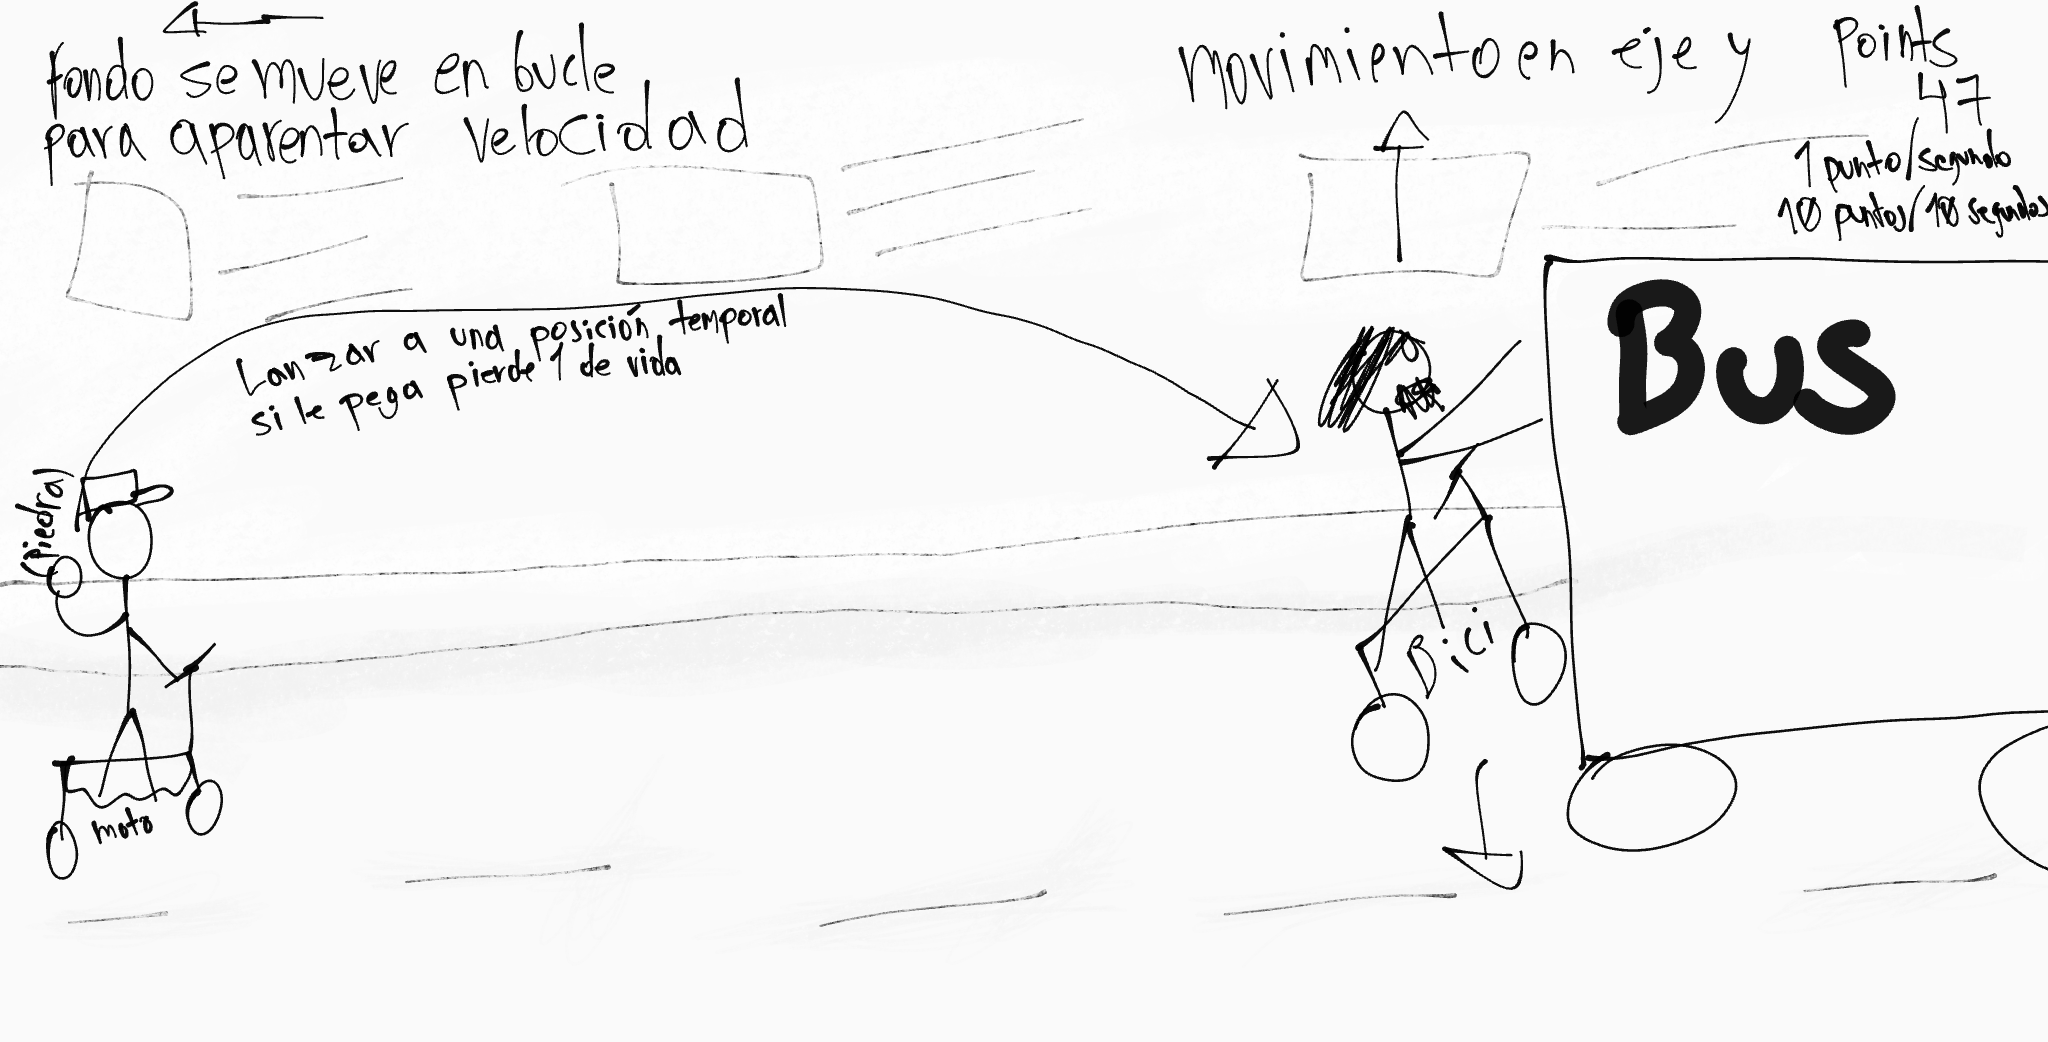 fondo se mueve en bucle
para aparentar velocidad
movimiento en eje y
Points
47
1 punto/segundo
10 puntos/10 segundos
Lanzar a una posición temporal
si le pega pierde 1 de vida
Bus
(piedra)
Bici
moto